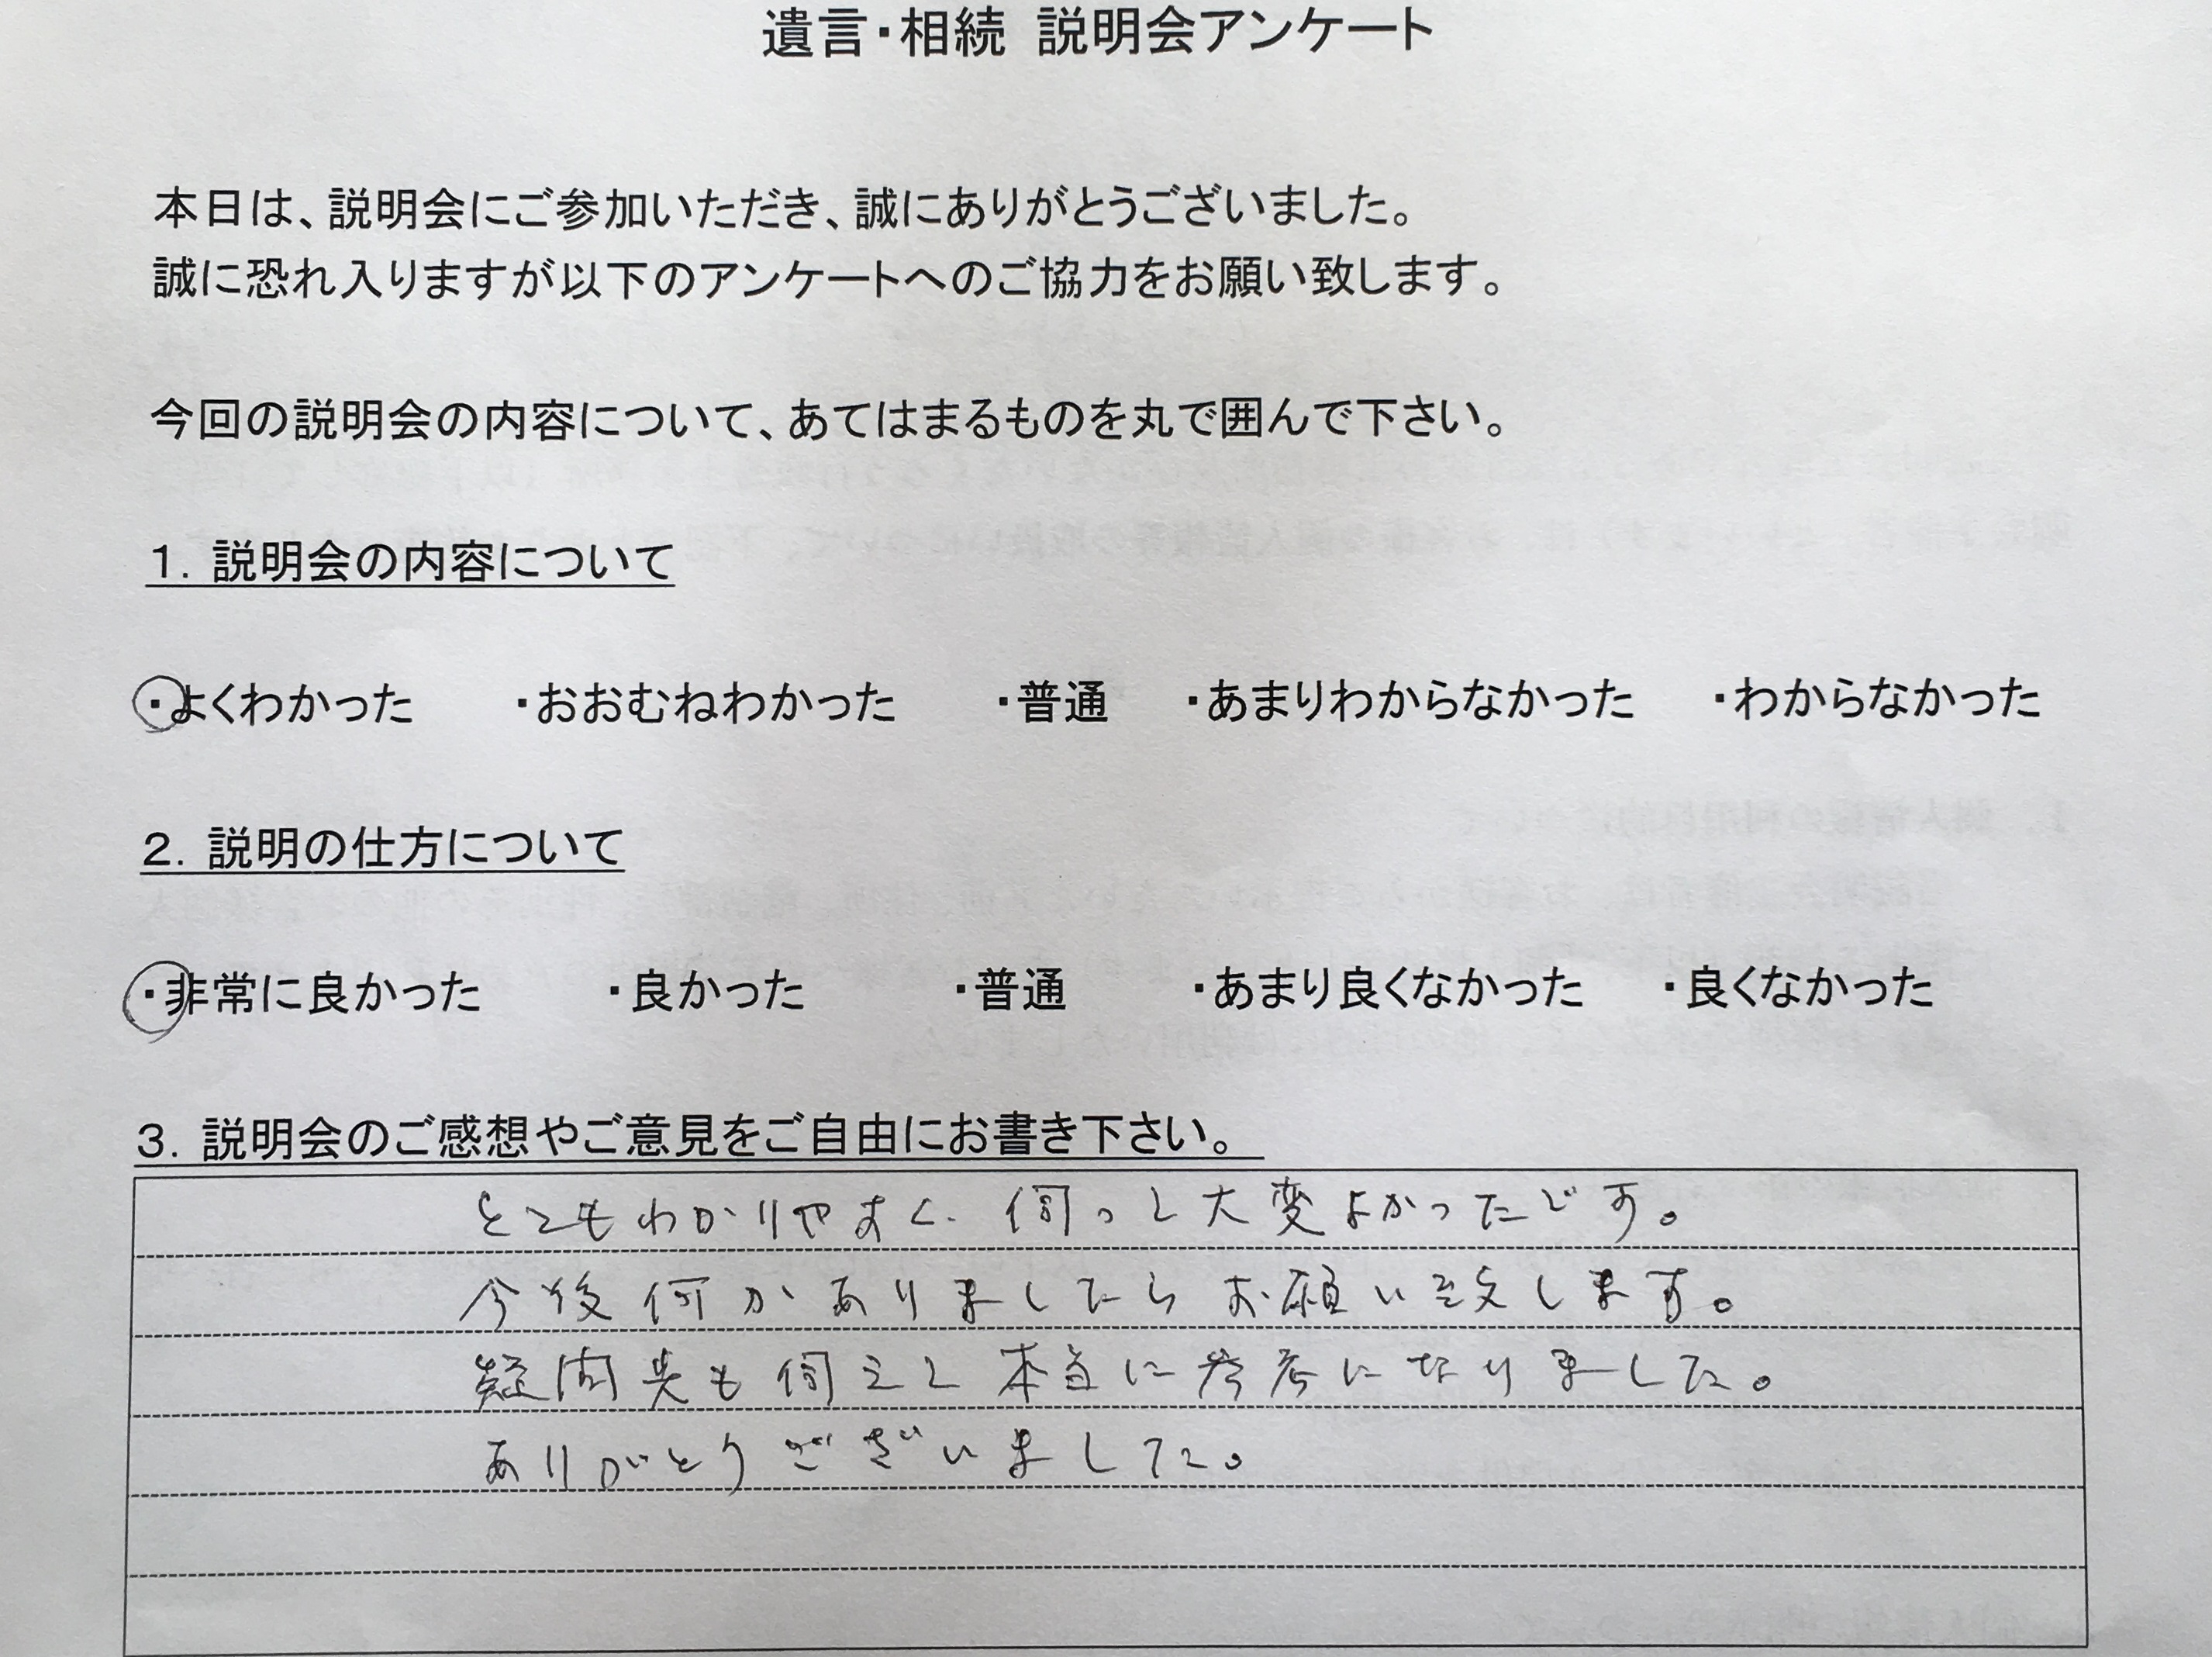 遺言・相続 説明会アンケート
本日は、説明会にご参加いただき、誠にありがとうございました。
誠に恐れ入りますが以下のアンケートへのご協力をお願い致します。
今回の説明会の内容について、あてはまるものを丸で囲んで下さい。
1. 説明会の内容について
・よくわかった ・おおむねわかった ・普通 ・あまりわからなかった ・わからなかった
2. 説明の仕方について
・非常に良かった ・良かった ・普通 ・あまり良くなかった ・良くなかった
3. 説明会のご感想やご意見をご自由にお書き下さい。
とてもわかりやすく、伺って大変よかったです。
今後何かありましたらお願い致します。
疑問点も伺えて本当に参考になりました。
ありがとうございました。